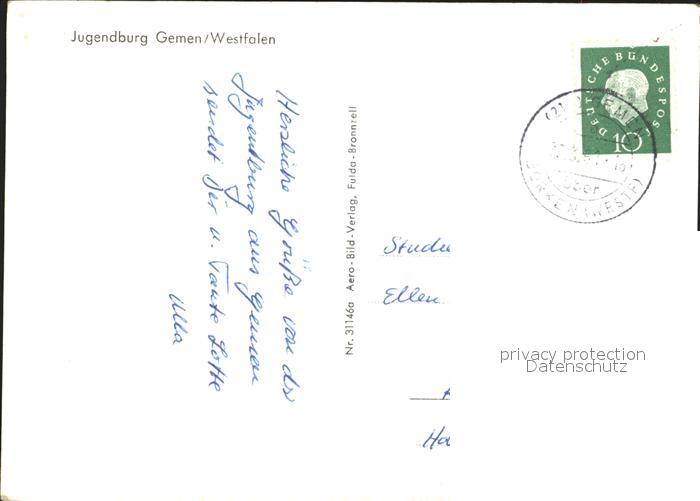 Jugendburg Gemen/Westfalen
Herzliche Grüße von der
Jugendburg aus Gemen
sendet Dir u. Tante Lotte
Ulla
Nr. 31146a Aero-Bild-Verlag, Fulda-Bronnzell
DEUTSCHE BUNDESPOST
10
(21) GEMEN
über
BORKEN (WESTF)
Stude
Ellen
Ha
privacy protection
Datenschutz